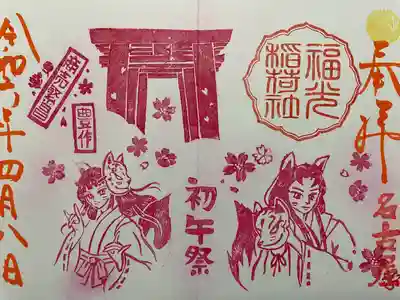 奉拝
名古屋
福光
稲荷社
初午祭
商売繁昌
豊作
令和六年四月八日